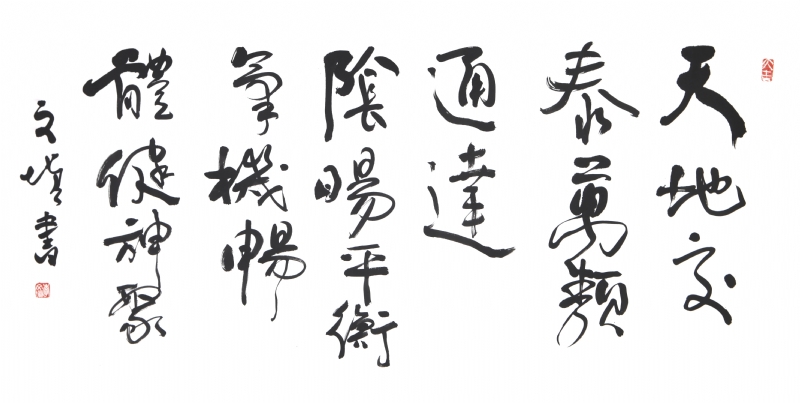 天地交
泰萬類
通達
陰陽平衡
氣機暢
體健神聚
文塏書